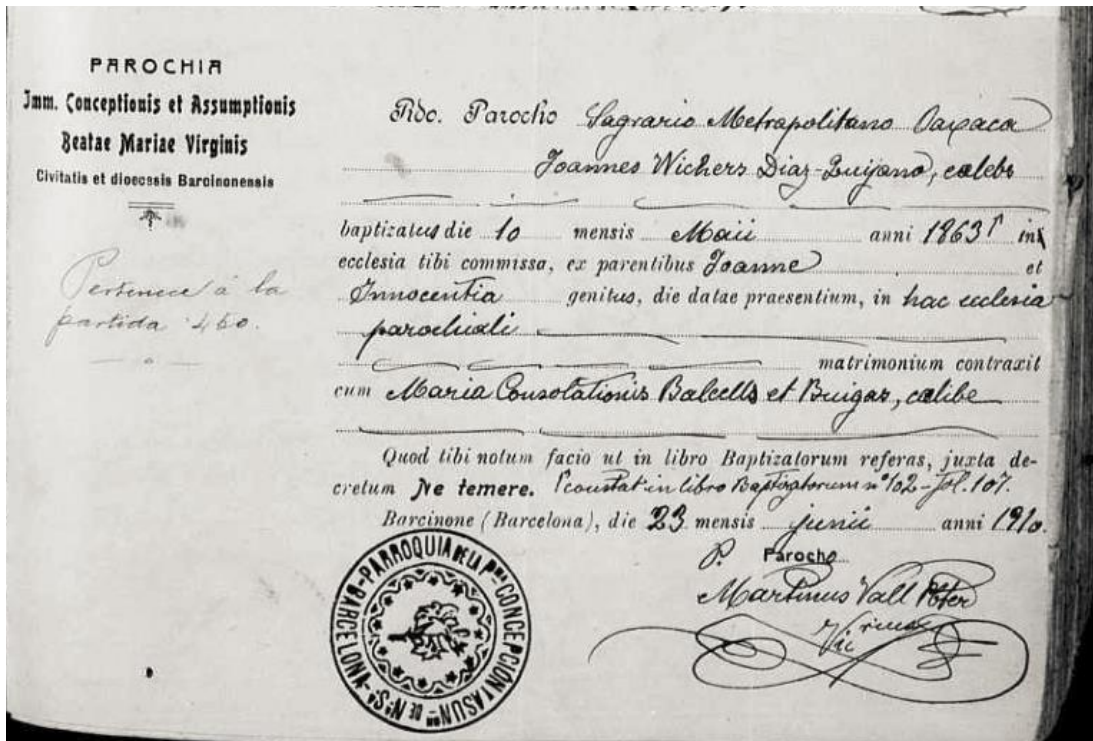 PAROCHIA
Imm. Conceptionis et Assumptionis
Beatae Mariae Virginis
Civitatis et dioecesis Barcinonensis
Pertenece á la
partida 460.
Rdo. Parocho Sagrario Metropolitano Oaxaca
Joannes Wichers Diaz-Quijano, celebs
baptizatus die 10 mensis Maii anni 1863 in
ecclesia tibi commissa, ex parentibus Joanne et
Innocentia genitus, die datae praesentium, in hac ecclesia
parochiali
matrimonium contraxit
cum Maria Consolationis Balcells et Buigas, celibe
Quod tibi notum facio ut in libro Baptizatorum referas, juxta de-
cretum Ne temere. constat in libro Baptizatorum nº 102 - fol. 107.
Barcinone (Barcelona), die 23 mensis junii anni 1910.
P. Parocho
Martinus Vall
Vic
PARROQUIA DE LA Pma CONCEPCIÓN Y ASUNon DE Na Sa - BARCELONA